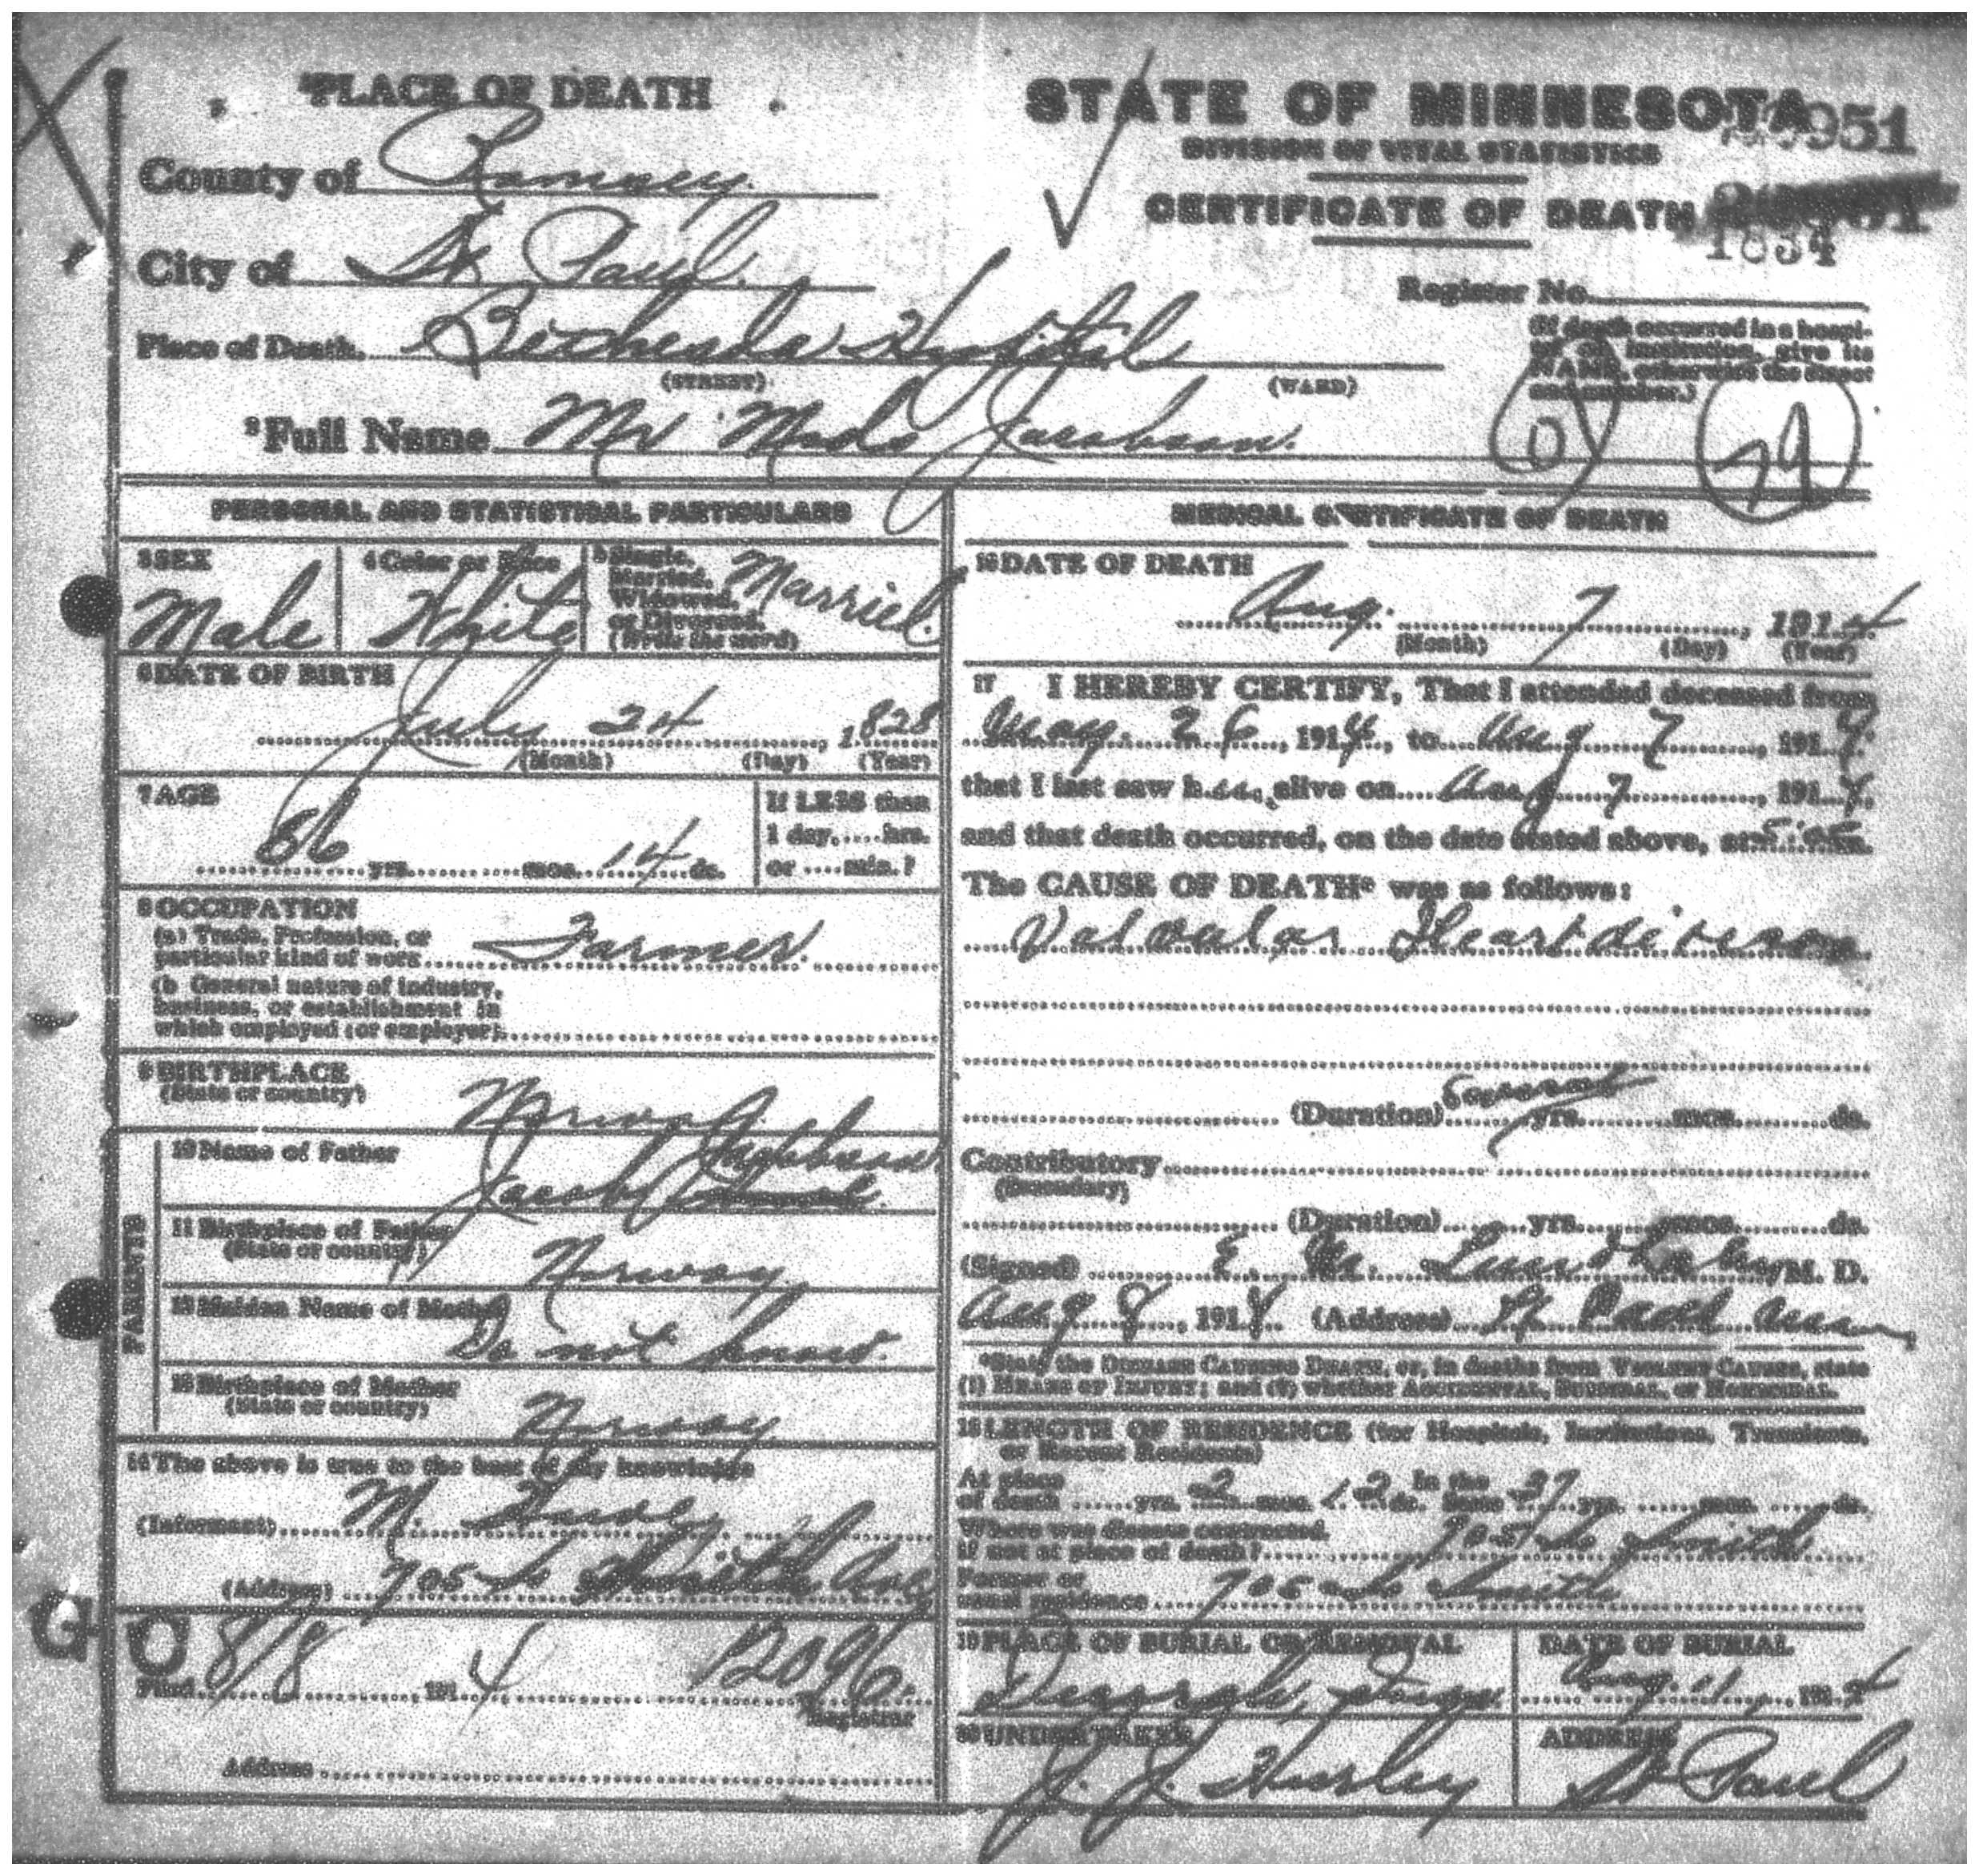 PLACE OF DEATH
County of Ramsey.
City of St Paul.
Place of Death. Bethesda Hospital
(STREET) (WARD)
STATE OF MINNESOTA
951
DIVISION OF VITAL STATISTICS
CERTIFICATE OF DEATH
1834
Register No.
(If death occurred in a hospi-
tal or institution, give its
NAME, otherwise the street
and number.)
0 79
2 Full Name Mr Mads Jacobson.
PERSONAL AND STATISTICAL PARTICULARS
3 SEX
Male
4 Color or Race
White
5 Single,
Married,
Widowed,
or Divorced.
(Write the word)
Married.
6 DATE OF BIRTH
July 24, 1828
(Month) (Day) (Year)
7 AGE
86 yrs. mos. 14 ds.
If LESS than
1 day, hrs.
or min.?
8 OCCUPATION
(a) Trade, Profession, or
particular kind of work Farmer.
(b General nature of industry,
business, or establishment in
which employed (or employer).
9 BIRTHPLACE
(State or country) Norway
PARENTS
10 Name of Father
Jacob Jacobson
11 Birthplace of Father
(State or country) Norway
12 Maiden Name of Mother
Do not know.
13 Birthplace of Mother
(State or country) Norway
14 The above is true to the best of my knowledge
(Informant) M.
(Address) 705 So Smith Ave
G O
Filed 8/8 1914 12096.
Registrar
Address
MEDICAL CERTIFICATE OF DEATH
16 DATE OF DEATH
Aug. 7, 1914
(Month) (Day) (Year)
17 I HEREBY CERTIFY, That I attended deceased from
May. 26, 1914, to Aug 7, 1914
that I last saw h alive on Aug 7, 1914,
and that death occurred, on the date stated above, at
The CAUSE OF DEATH* was as follows:
Valvular Heart disease
(Duration) Several yrs. mos. ds.
Contributory
(Secondary)
(Duration) yrs. mos. ds.
(Signed) E. M. Lundholm, M. D.
Aug 8, 1914. (Address) St Paul Minn
*State the DISEASE CAUSING DEATH, or, in deaths from VIOLENT CAUSES, state
(1) MEANS OF INJURY; and (2) whether ACCIDENTAL, SUICIDAL, or HOMICIDAL.
18 LENGTH OF RESIDENCE (for Hospitals, Institutions, Transients,
or Recent Residents)
At place
of death yrs. 2 mos. 12 ds. In the State 37 yrs. mos. ds.
Where was disease contracted.
if not at place of death? 705 So Smith
Former or
usual residence 705 So Smith
19 PLACE OF BURIAL OR REMOVAL
DATE OF BURIAL
Aug. 11, 1914
20 UNDERTAKER
J. J. Hurley
ADDRESS
St Paul